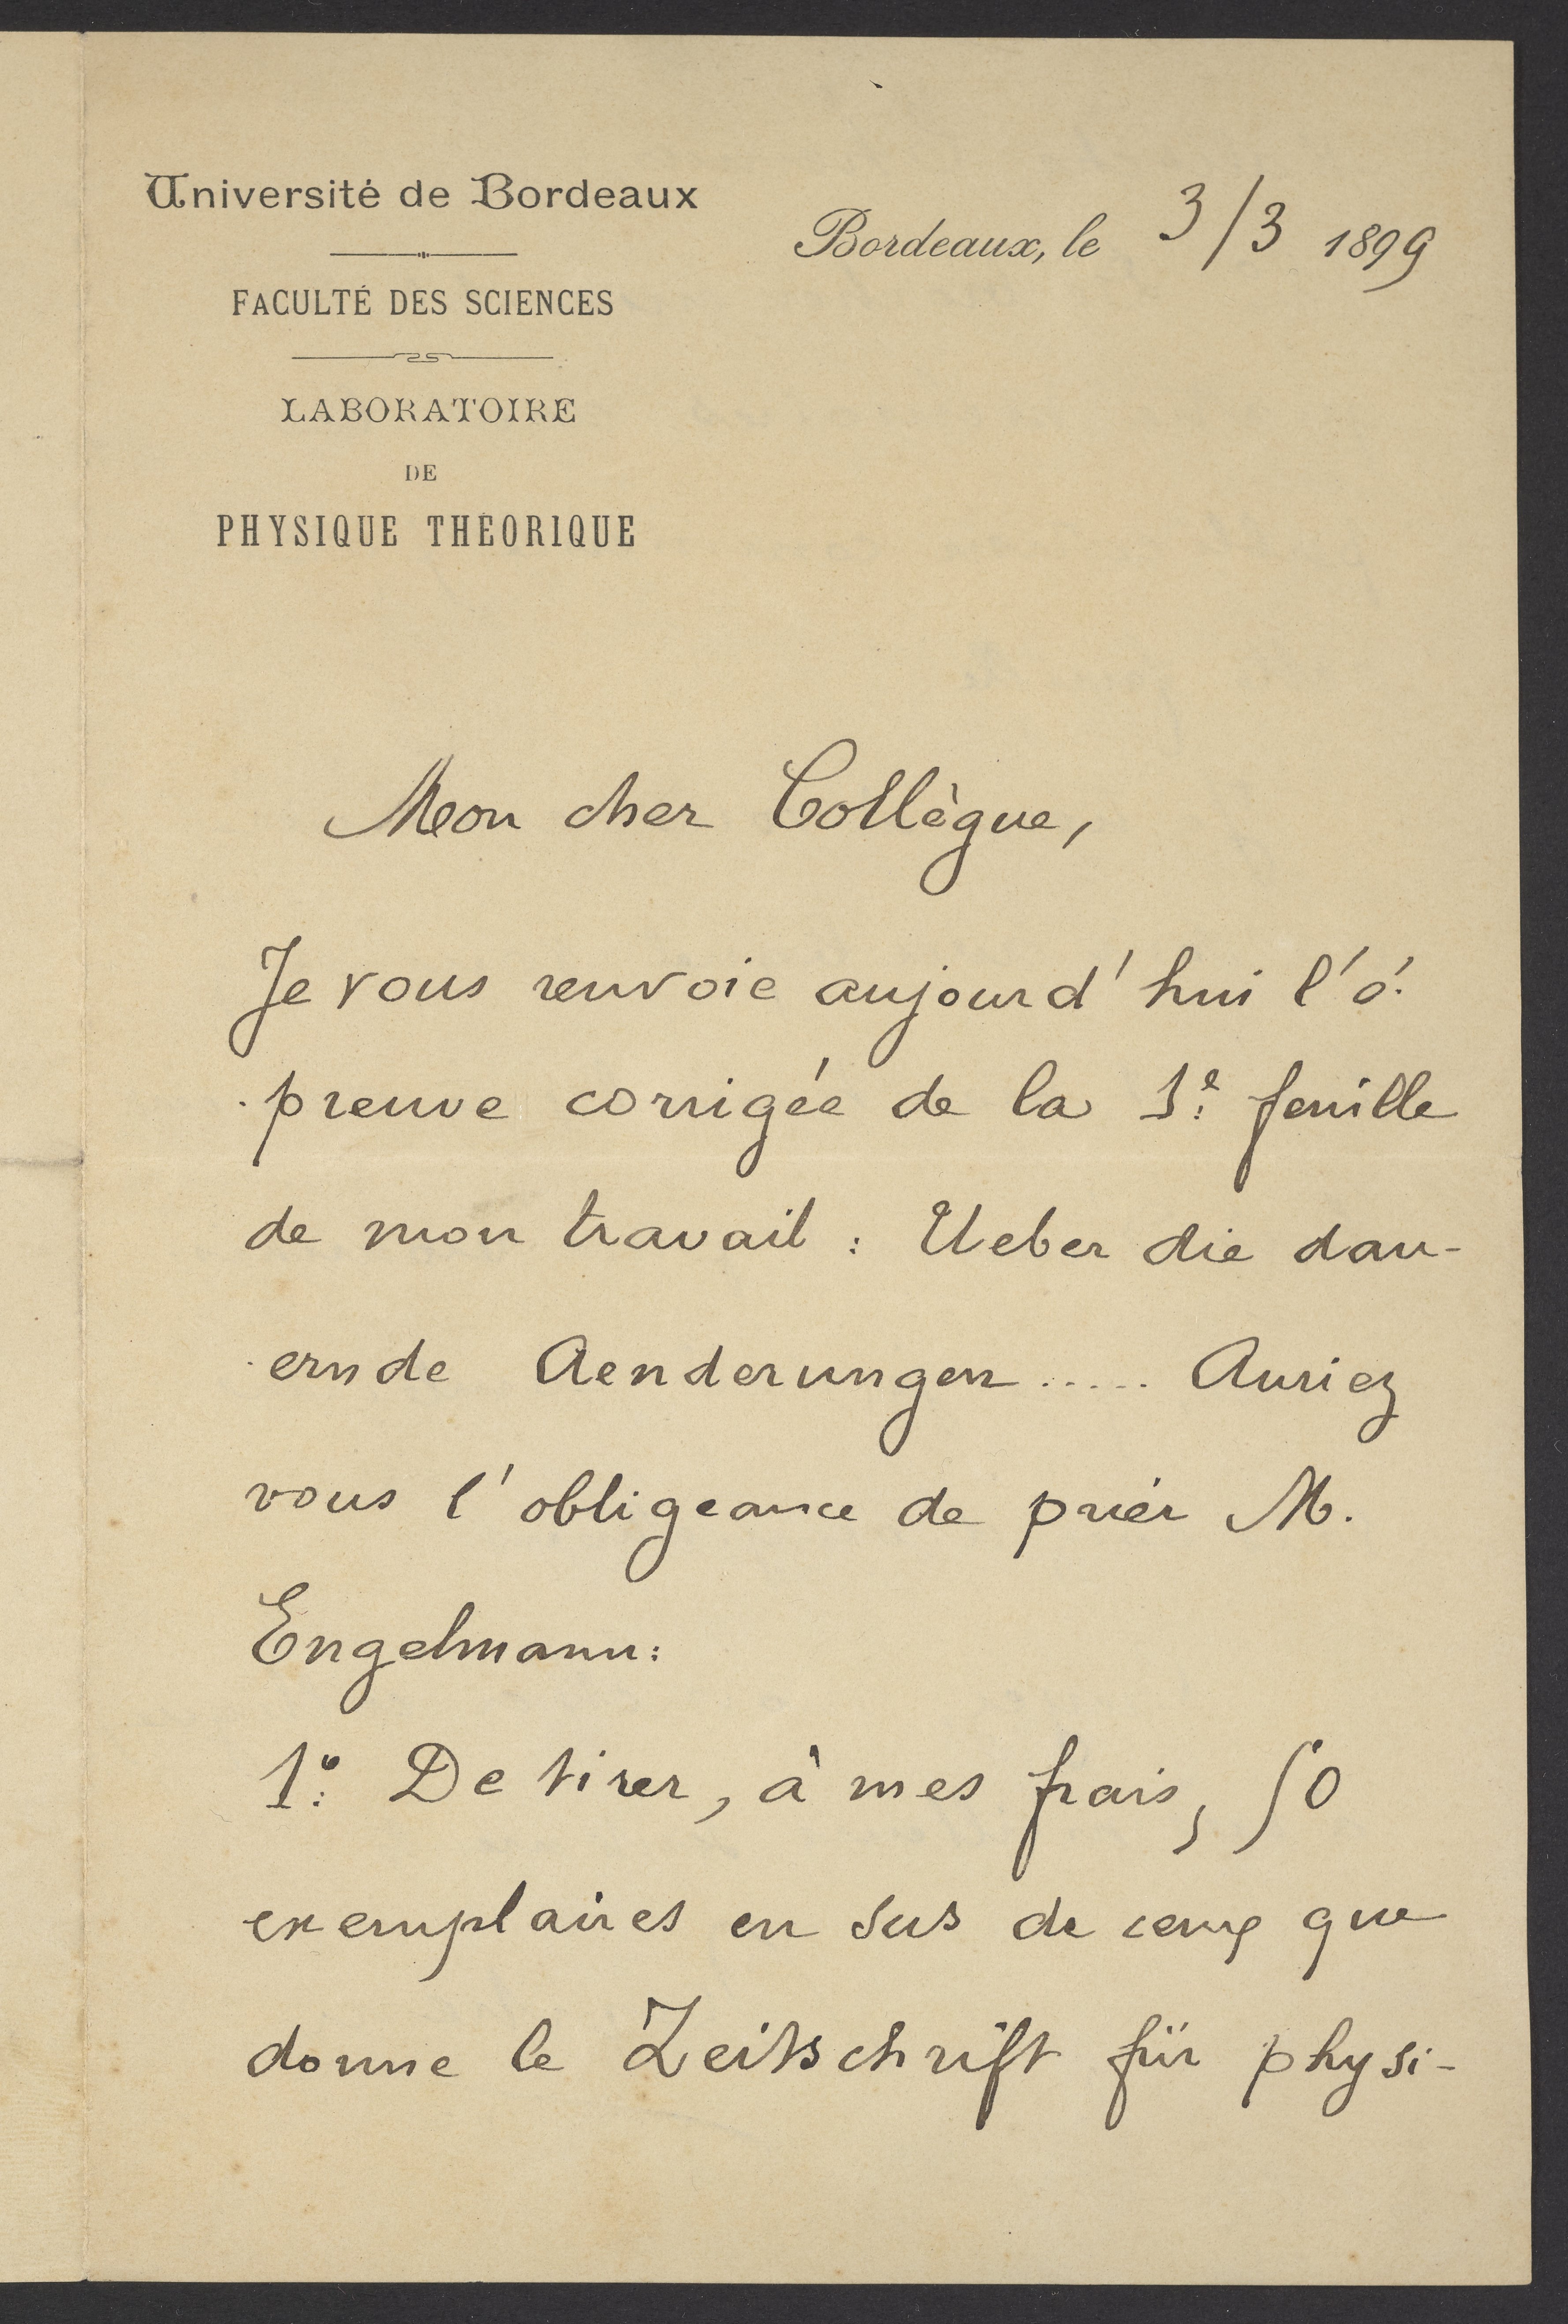 Université de Bordeaux
FACULTÉ DES SCIENCES
LABORATOIRE
DE
PHYSIQUE THÉORIQUE
Bordeaux, le 3/3 1899
Mon cher Collègue,
Je vous renvoie aujourd'hui l'é-
-preuve corrigée de la 1e feuille
de mon travail : Ueber die dau-
-ernde Aenderungen ..... Auriez
vous l'obligeance de prier M.
Engelmann:
1o De tirer, à mes frais, 50
exemplaires en sus de ceux que
donne le Zeitschrift für physi-